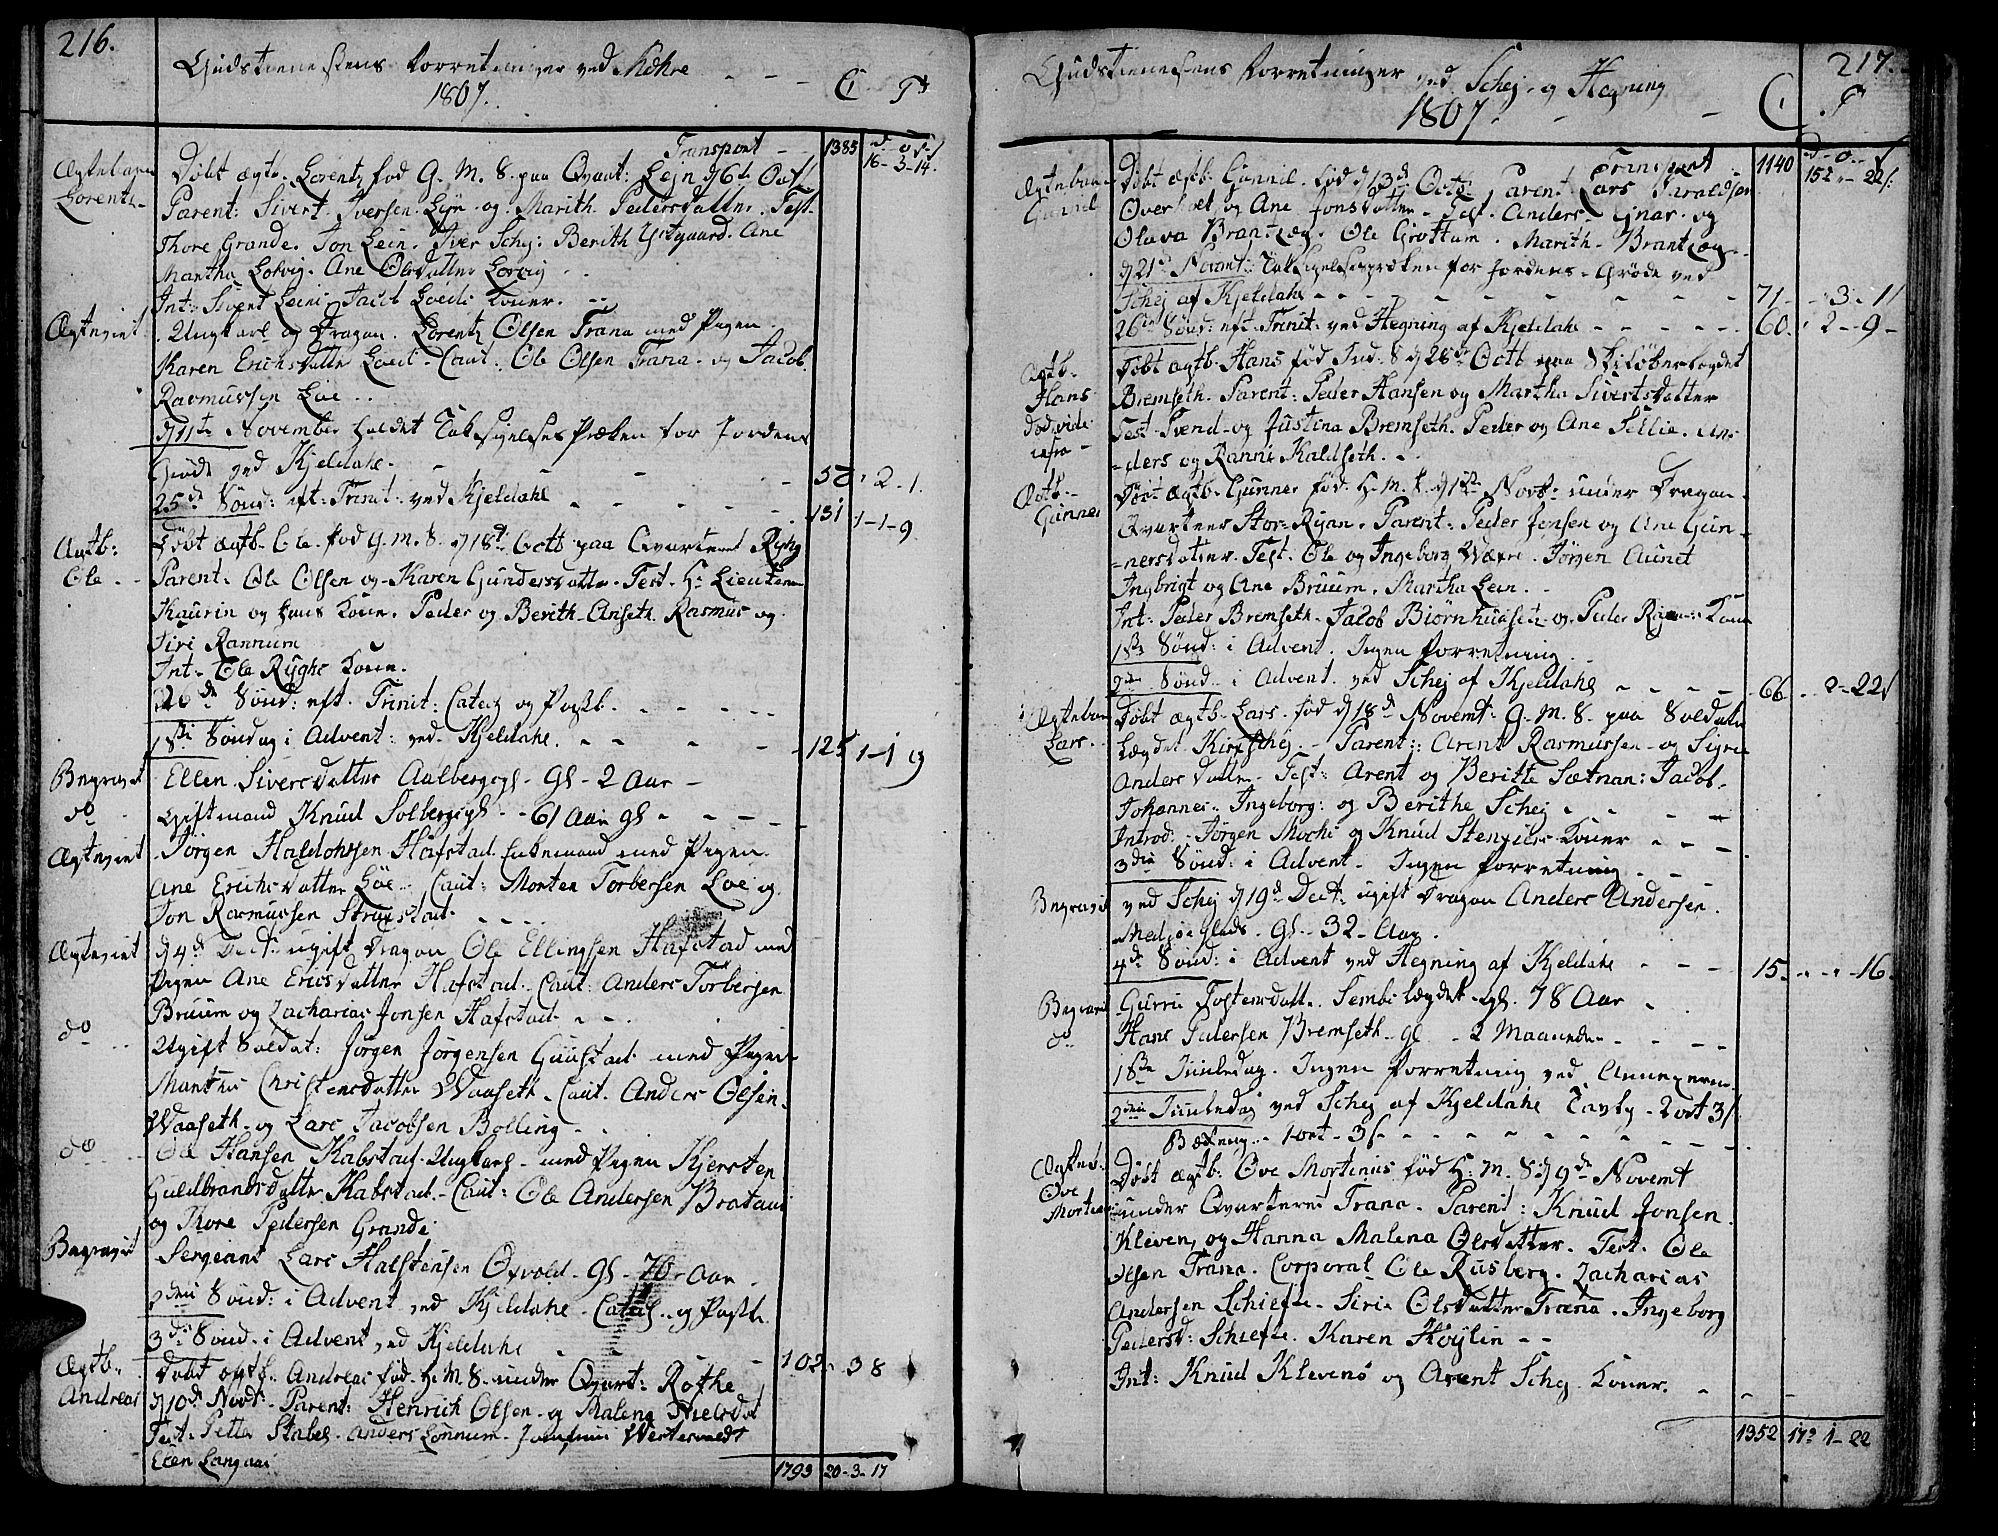 216.
Gudstienestens Forretninger ved Mæhre
1807.
C T
Transport 1385 16-3-14.
Ægtebarn Lorentz
Døbt ægtb. Lorentz fød G. M. S. paa Qvart: Lejn d 6t Oct
Parent: Sivert Iversen Lejn og Marith Pedersdatter. Test.
Thore Grande. Jon Lein. Iver Schej: Berith Ystgaard. Ane
Martha Lorvig. Ane Olsdatter Lorvig
Int: Sivert Leins Koner.
Ægteviet
Ungkarl og Dragon. Lorentz Olsen Trana med Pigen
Karen Erichsdatter Caut: Ole Olsen Trana og Jacob
Rasmussen Løe
d 11te November holdet Taksigelses Præken for Jordens
Grøde ved Kjeldahl 52 - 2 - 1.
25de Sønd: eft: Trinit: ved Kjeldahl 131 1-1-9
Ægtb: Ole
Døbt ægtb. Ole fød G. M. S. d 18de Octb paa Qvarteret Rygh
Parent. Ole Olsen og Karen Gundersdatter. Test. Hr Lieutenn
Kaurin og hans Kone. Peder og Berith Anseth. Rasmus og
Siri Rannum
Int: Ole Ryghs Kone.
26de Sønd: eft. Trinit: Catech og Postl.
1ste Søndag i Advent: ved Kjeldahl 125 1-1-9
Begravet
Ellen Siversdatter Aalberg gl. 2 Aar
do
Giftmand Knud Solberg 61 Aar gl
Ægteviet
Jørgen Hafstad Enkemand med Pigen
Ane Erichsdatter Løe Caut: Morten Torbersen Løe og
Jon Rasmussen
Ægteviet
d 4de Decb. ugift Dragon Ole Ellingsen Hafstad med
Pigen Ane Ericsdatter Hafstad. Caut: Anders Torbersen
Bruum og Zacharias Jonsen Hafstad
do
Ugift Soldat: Jørgen Jørgensen Gustad med Pigen
Christensdatter Waaseth. Caut. Anders Olsen
Waaseth og Lars Jacobsen Bolling
do
Ole Hansen Kabstad Ungkarl med Pigen Kjersten
Guldbrandsdatter Kabstad. Caut: Ole Andersen
og Thore Pedersen Grande
Begravet
Sergeant Lars Halstensen Oxvold gl 70 Aar
2den Sønd: i Advent ved Kjeldahl Catech. og Postl.
3de Sønd. i Advent ved Kjeldahl 102 - 3 8
Ægtb. Andreas
Døbt ægtb. Andreas fød H. M. S. under Qvart: Rothe
d 10de Novb. Parent: Henrich Olsen og Malena Nielsdat
Test. Petter Stabel. Anders Lonnum.
1793 20-3-17
217.
Gudstienestens Forretninger ved Schej og Hegning
1807
C T
Transport 1140 152 - 22
Ægtebarn Gunnil
Døbt ægtb. Gunnil fød d 13de Octb. Parent Lars Haraldsen
Overholt og Ane Jonsdatter. Test. Anders Gnar og
Olava Brantzæg. Ole Grottum. Marith Brantzæg
d 21de Novemb: Taksigelsespræken for Jordens Grøde ved
Schej af Kjeldahl 71 - 3 - 11
26de Sønd: eft. Trinit: ved Hegning af Kjeldahl 60 - 2 - 9
Ægtb. Hans død vide infra
Døbt ægtb. Hans fød d 28de Octb paa
Bremseth. Parent: Peder Hansen og Martha Sivertsdatter
Test. Svend og Justina Bremseth. Peder og Ane Sellie. An-
ders og Ranni Kaldseth.
Ægtb. Gunner
Døbt ægtb. Gunner fød H. M. S. d 1ste Novb. under Dragon
Qvarteer Stor-Ryan. Parent: Peder Jensen og Ane Gun-
nersdatter. Test. Ole og Ingeborg Wæxe. Jørgen Aunet
Ingbrigt og Ane Bruum. Martha Lein.
Int: Peder Bremseth. Jacob og Peder Ryans Koner
1ste Sønd: i Advent. Ingen Forretning
2den Sønd i Advent ved Schej af Kjeldahl 66 - 2 - 22
Ægtebarn Lars
Døbt ægtb. Lars fød d 18de Novemb: G. M. S. paa Soldat
Lægdet Kirkschej. Parent: Arent Rasmussen og Sigri
Andersdatter. Test: Arent og Beritte Sætnan. Jacob.
Johannes. Ingeborg: og Berithe Schej
Introd: Jørgen Moche og Knud Koner
3die Sønd: i Advent. Ingen Forretning
Begravet
ved Schej d 19de Decb. ugift Dragon Anders Andersen
gl. 32 Aar.
4de Sønd: i Advent ved Hegning af Kjeldahl 15 - 16
Begravet
Gurri Tostensdatt. gl. 78 Aar
do
Hans Pedersen Bremseth gl 2 Maaneder
1ste Juuledag. Ingen Forretning ved Annexerne
2den Juuledag ved Schej af Kjeldahl Tavlp. 2 ort 3
1 ort 3
Ægteb. Ove Mortinus
Døbt ægtb. Ove Mortinus fød H. M. S. d 9de Novemb
under Qvarteret Trana. Parent: Knud Jonsen
Kleven og Hanna Malena Olsdatter. Test. Ole
Olsen Trana. Corporal Ole Rusberg. Zacharias
Andersen Schiefte. Siri Olsdatter Trana. Ingeborg
Pedersd: Schiefte. Karen Høylin
Int: Knud Klevens og Arent Schej Koner.
1352 173 1 - 22